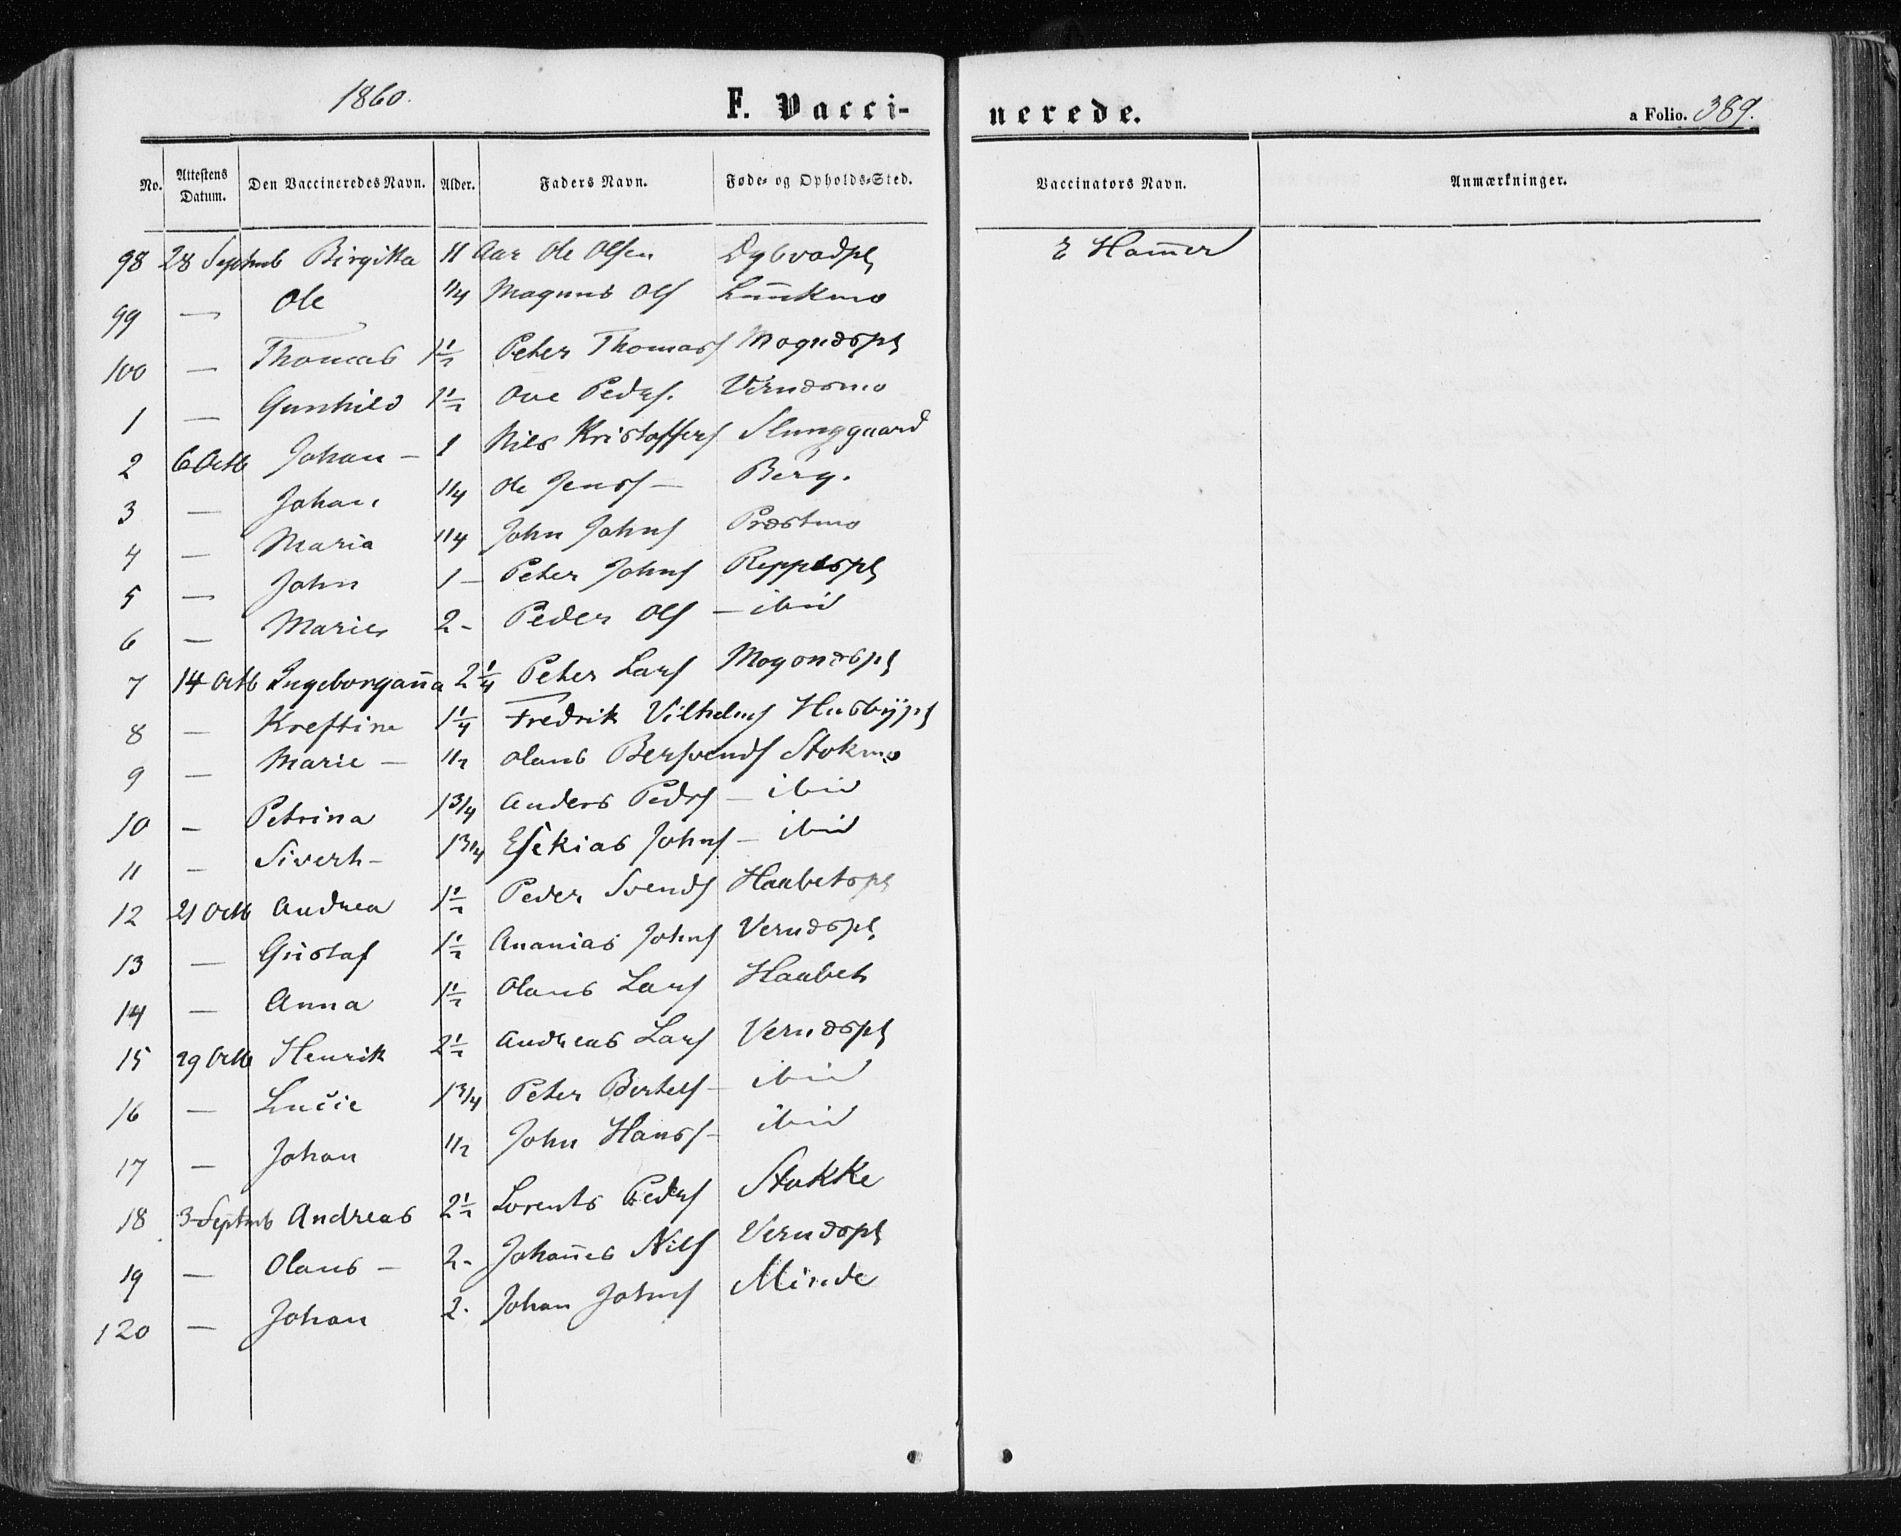 1860.
F. Vacci-
nerede.
a Folio. 389.
No. Attestens Datum. Den Vaccineredes Navn. Alder. Faders Navn. Føde- og Opholds-Sted. Vaccinators Navn. Anmærkninger.
98 28 Septmb Birgitta 11 Aar Ole Olsen Dybvadpl E Ham̄er
99 — Ole 1 1/4 Magnus Ols
100 — Thomas 1 1/2 Peter Thomass Mognæspl
1 — Gunhild 1 1/2 Ove Peders. Vernæsmo
2 6 Octb Johan — 1 Nils Kristoffers Slunggaard
3 — Johan 1 1/4 Ole Jenss — Berg.
4 — Maria 1 1/4 John Johns Præstmo
5 — John 1 — Peter Johns Reppespl
6 — Marie 2 - Peder Ols — ibid
7 14 Octb Ingeborgan̄a 2 1/4 Peter Lars Mogonæspl
8 — Kreftine 1 1/4 Fredrik Vilhelms Husbÿpl
9 — Marie — 1 1/2 Olaus Bersvends Stokmo
10 — Petrina 1 3/4 Anders Peds — ibid
11 — Siverh — 1 3/4 Esekias Johns — ibid
12 21 Octb Andrea 1 1/2 Peder Svends Haabetspl
13 — Gustaf 1 1/2 Ananias Johns Vernæspl
14 — Anna 1 1/2 Olaus Lars Haabet
15 29 Octb Henrik 2 1/2 Andreas Lars Vernæspl
16 — Lucie 1 3/4 Peter Bertels — ibid
17 — Johan 1 1/2 John Hanss — ibid
18 3 Septmb Andreas 2 1/2 Lorents Peders Stokke
19 — Olaus — 2 - Johan̄es Nils Vernæspl
120 — Johan 2 - Johan Johns Minde